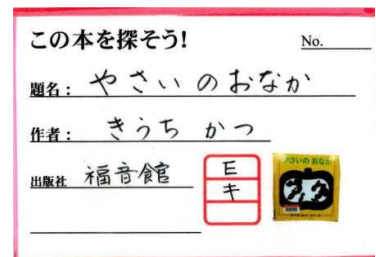 この本を探そう!
No.
題名: やさいのおなか
作者: きうち かつ
出版社 福音館
E
キ
やさいの おなか